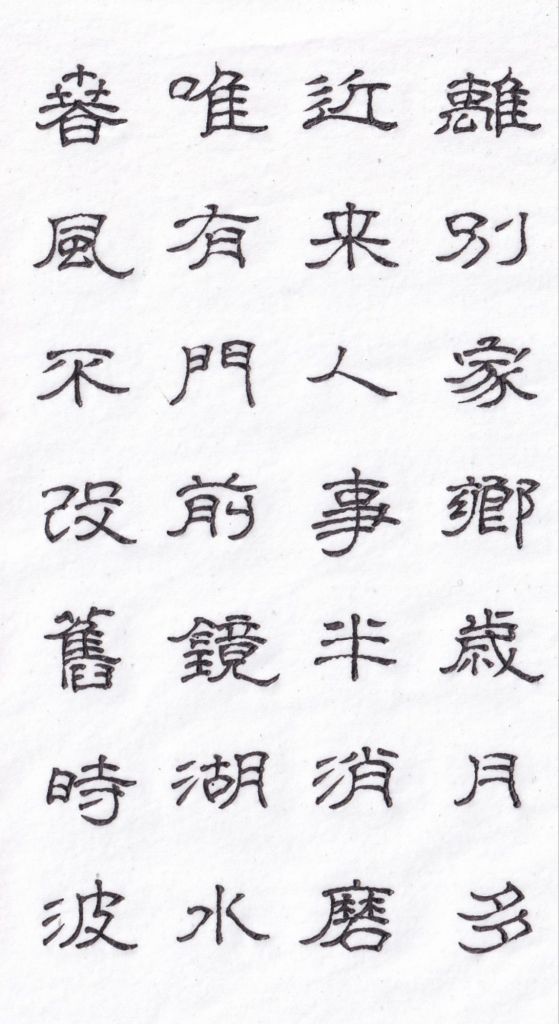 離別家鄉歳月多
近来人事半消磨
唯有門前鏡湖水
春風不改舊時波